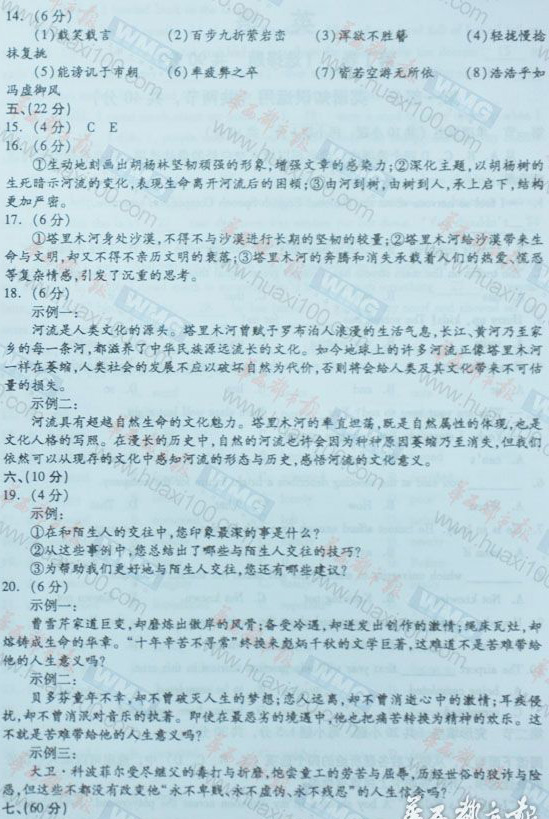 14. (6分)
(1)载笑载言 (2)百步九折萦岩峦 (3)浑欲不胜簪 (4)轻拢慢捻
抹复挑
(5)能谤讥于市朝 (6)率疲弊之卒 (7)皆若空游无所依 (8)浩浩乎如
冯虚御风
五、(22分)
15. (4分) C E
16. (6分)
①生动地刻画出胡杨林坚韧顽强的形象,增强文章的感染力;②深化主题,以胡杨树的
生死暗示河流的变化,表现生命离开河流后的困顿;③由河到树,由树到人,承上启下,结构
更加严密。
17. (6分)
①塔里木河身处沙漠,不得不与沙漠进行长期的坚韧的较量;②塔里木河给沙漠带来生
命与文明,却又不得不亲历文明的衰落;③塔里木河的奔腾和消失承载着人们的热爱、慌恐
等复杂情感,引发了沉重的思考。
18. (6分)
示例一:
河流是人类文化的源头。塔里木河曾赋予罗布泊人浪漫的生活气息,长江、黄河乃至家
乡的每一条河,都滋养了中华民族源远流长的文化。如今地球上的许多河流正像塔里木河
一样在萎缩,人类社会的发展不应以破坏自然为代价,否则将会给人类及其文化带来不可估
量的损失。
示例二:
河流具有超越自然生命的文化魅力。塔里木河的率直坦荡,既是自然属性的体现,也是
文化人格的写照。在漫长的历史中,自然的河流也许会因为种种原因萎缩乃至消失,但我们
依然可以从现存的文化中感知河流的形态与历史,感悟河流的文化意义。
六、(10分)
19. (4分)
示例:
①在和陌生人的交往中,您印象最深的事是什么?
②从这些事例中,您总结出了哪些与陌生人交往的技巧?
③为帮助我们更好地与陌生人交往,您还有哪些建议?
20. (6分)
示例一:
曹雪芹家道巨变,却磨炼出傲岸的风骨;备受冷遇,却迸发出创作的激情;绳床瓦灶,却
熔铸成生命的华章。“十年辛苦不寻常”终换来彪炳千秋的文学巨著,这难道不是苦难带给
他的人生意义吗?
示例二:
贝多芬童年不幸,却不曾破灭人生的梦想;恋人远离,却不曾消逝心中的激情;耳疾侵
扰,却不曾消泯对音乐的执著。即使在最恶劣的境遇中,他也把痛苦转换为精神的欢乐。这
不就是苦难带给他的人生意义吗?
示例三:
大卫·科波菲尔受尽继父的毒打与折磨,饱尝童工的劳苦与屈辱,历经世俗的狡诈与险
恶,但这些不都没有改变他“永不卑贱、永不虚伪、永不残忍”的人生信念吗?
七、(60分)
华西都市报
WMG
www.huaxi100.com